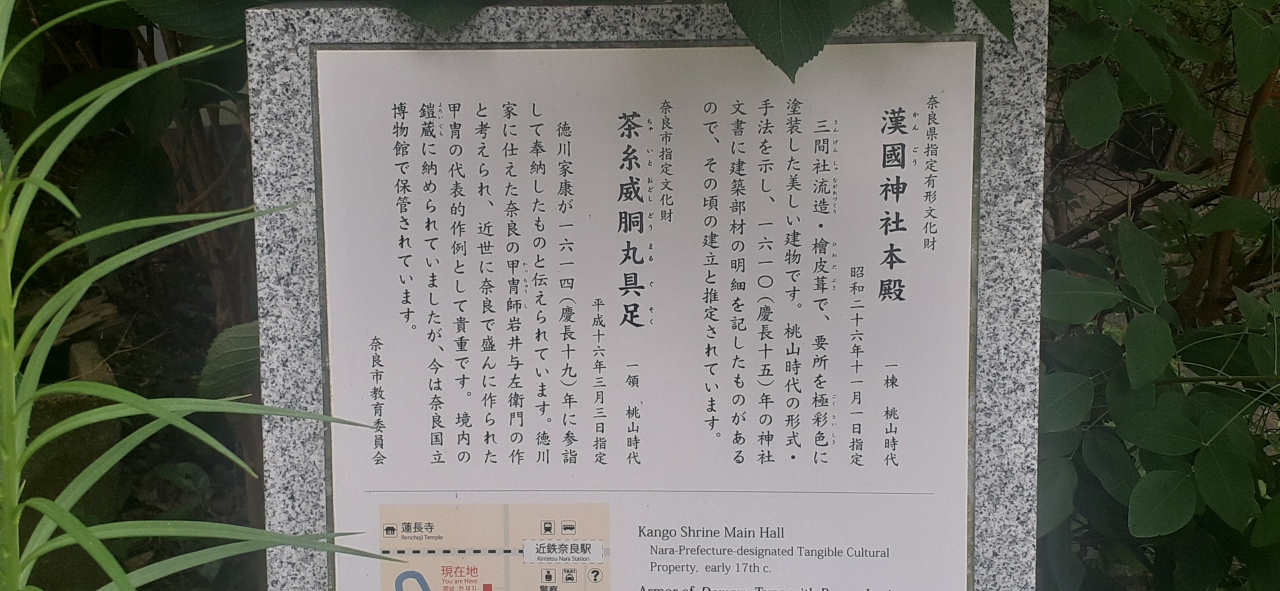 奈良県指定有形文化財
漢國神社本殿 一棟 桃山時代
かんごう
昭和二十六年十一月一日指定
三間社流造・檜皮葺で、要所を極彩色に
さんげんしゃながれづくり ひわだぶき ごくさいしき
塗装した美しい建物です。桃山時代の形式・
手法を示し、一六一〇(慶長十五)年の神社
文書に建築部材の明細を記したものがある
ので、その頃の建立と推定されています。
奈良市指定文化財
茶糸威胴丸具足 一領 桃山時代
ちゃいとおどしどうまるぐそく
平成十六年三月三日指定
徳川家康が一六一四(慶長十九)年に参詣
して奉納したものと伝えられています。徳川
家に仕えた奈良の甲冑師岩井与左衛門の作
かっちゅうし
と考えられ、近世に奈良で盛んに作られた
甲冑の代表的作例として貴重です。境内の
鎧蔵に納められていましたが、今は奈良国立
よろいぐら
博物館で保管されています。
奈良市教育委員会
蓮長寺
Renchoji Temple
近鉄奈良駅
Kintetsu Nara Station
現在地
You are Here
TAXI
?
警察
Kango Shrine Main Hall
Nara-Prefecture-designated Tangible Cultural
Property, early 17th c.